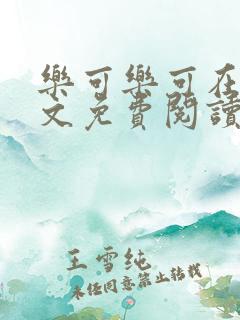 樂可樂可在
文免費閱讀
王雪纯
未经同意禁止转载